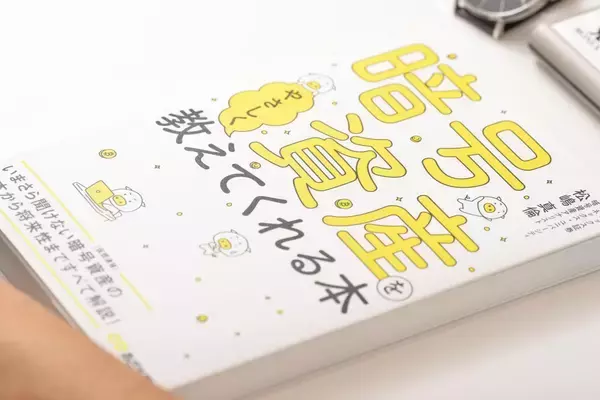 暗号資産を
やさしく
教えてくれる本
松嶋真倫
いまさら聞けない暗号資産の
から将来性まですべて解説!